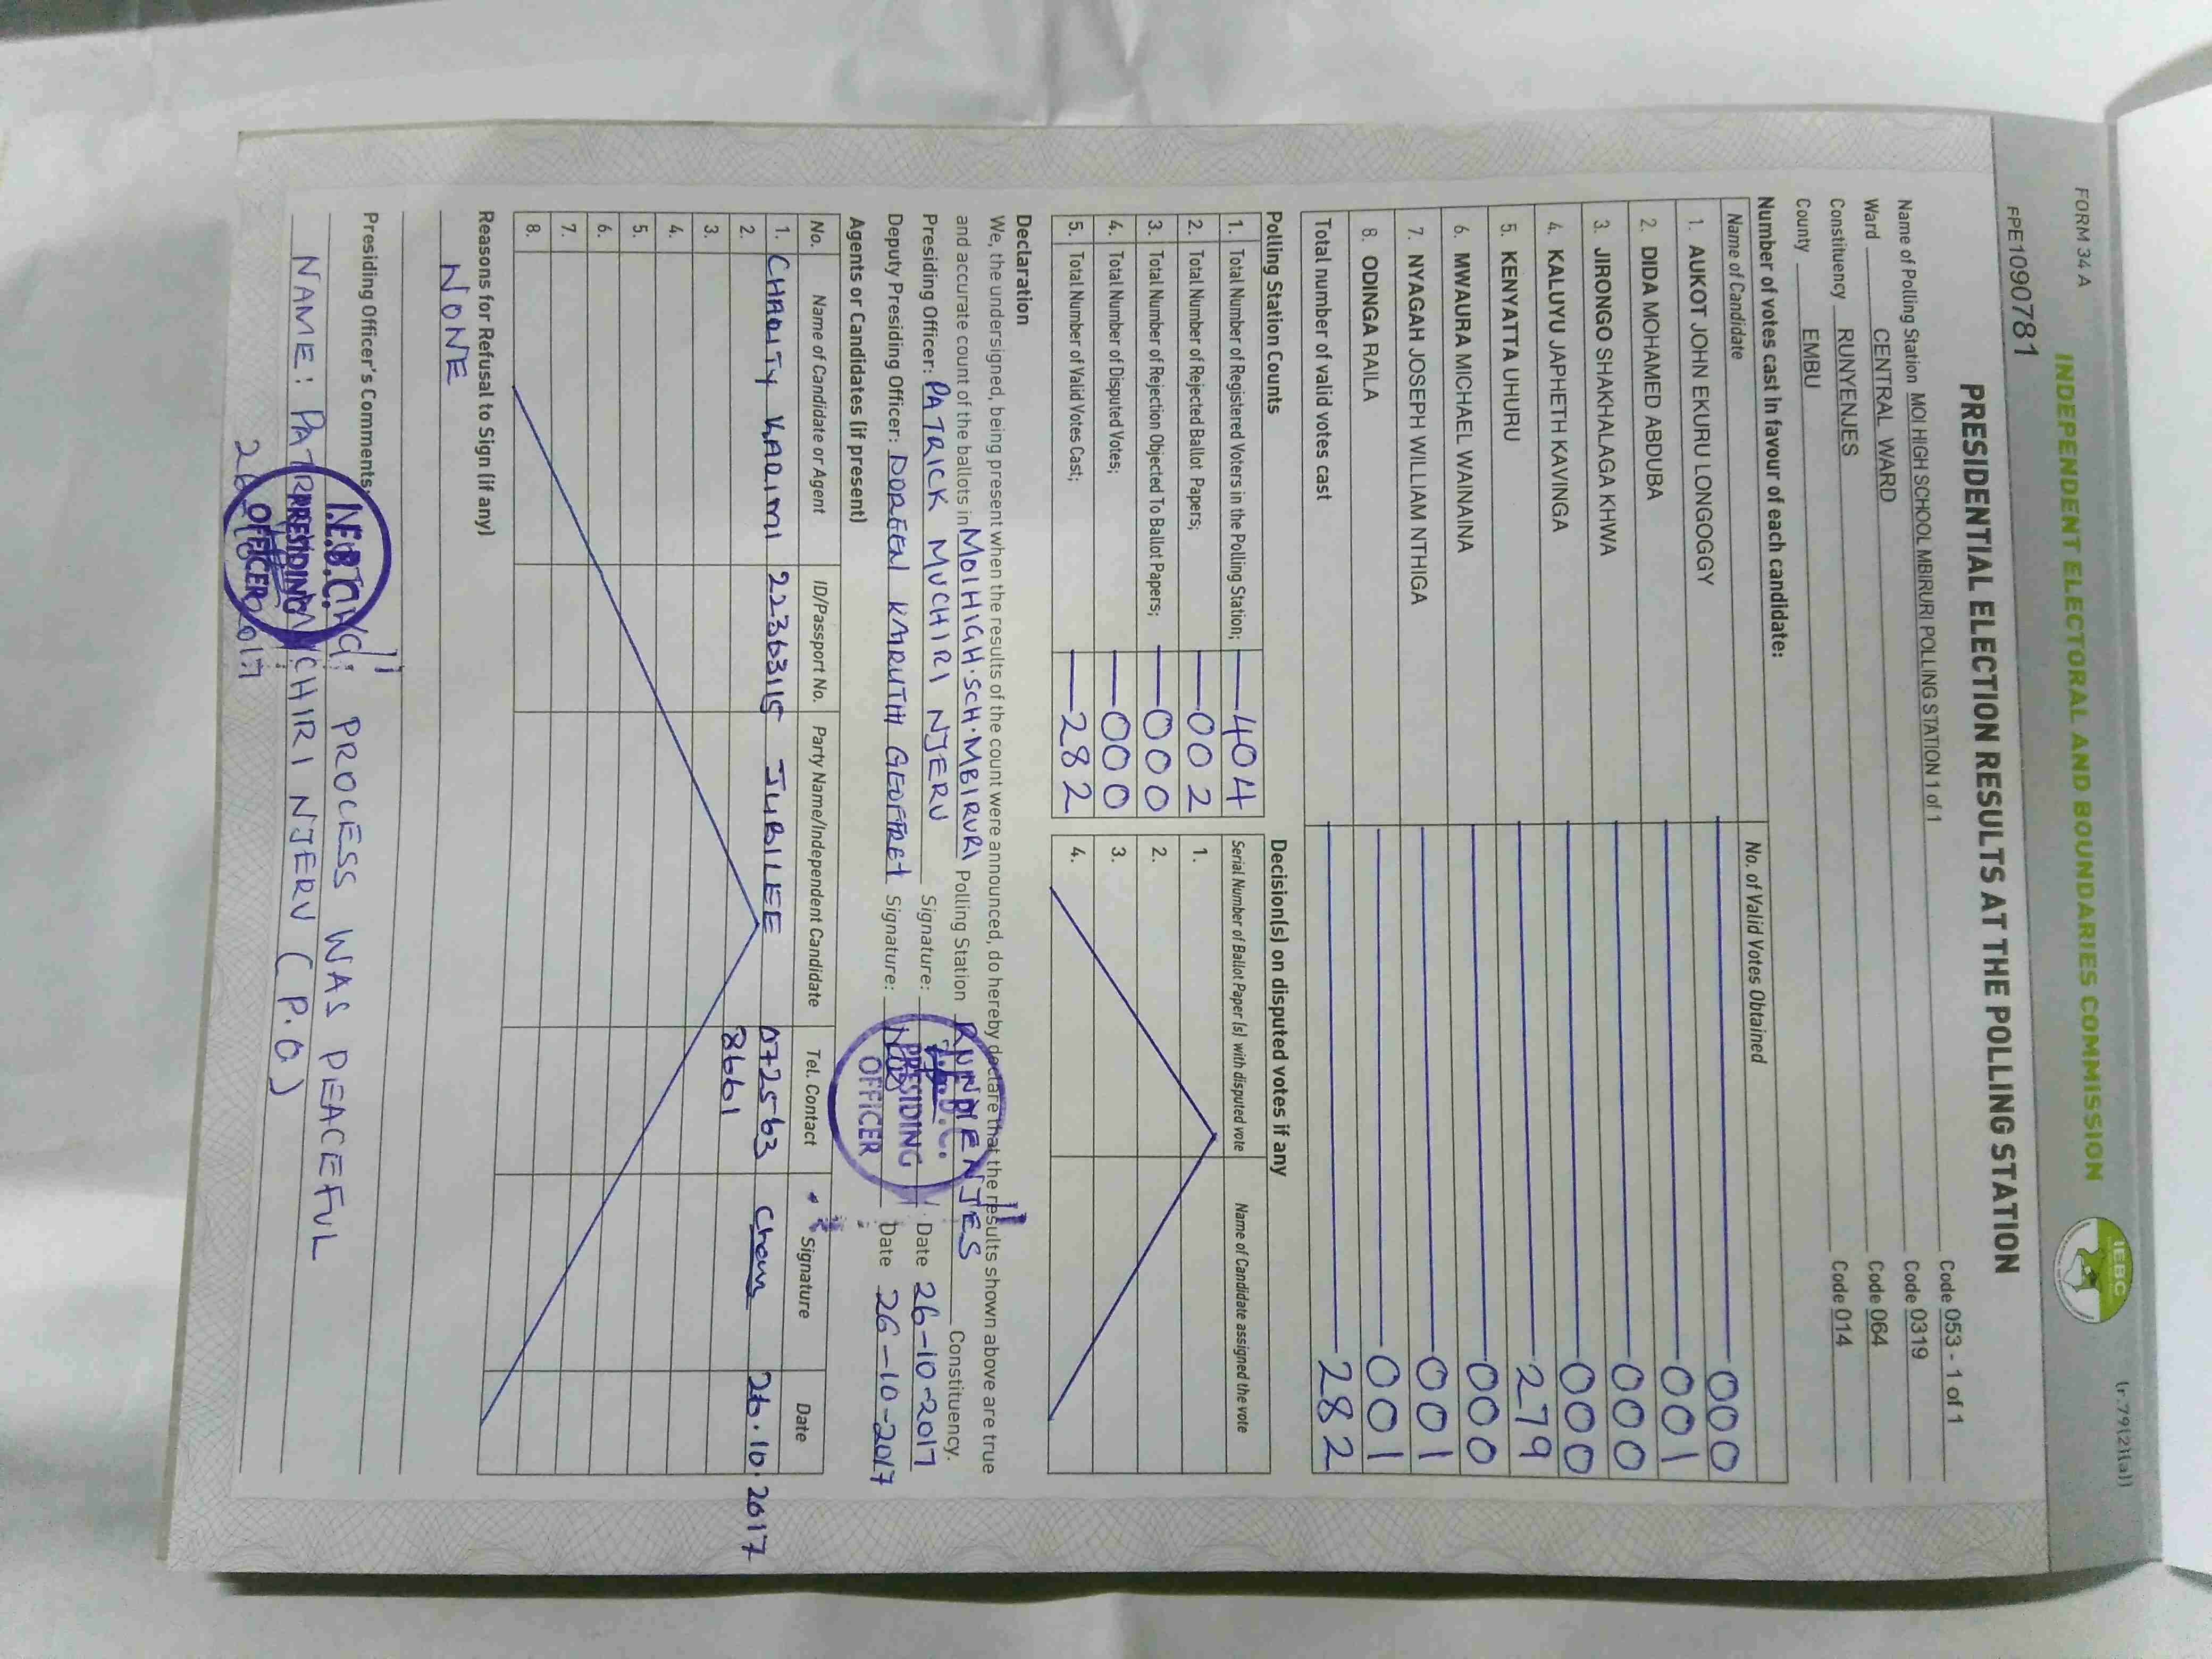 FORM 34 A
(r.79(2)(a))
INDEPENDENT ELECTORAL AND BOUNDARIES COMMISSION
IEBC
FPE1090781
PRESIDENTIAL ELECTION RESULTS AT THE POLLING STATION
Name of Polling Station MOI HIGH SCHOOL MBIRURI POLLING STATION 1 of 1 Code 053 - 1 of 1
Ward CENTRAL WARD Code 0319
Constituency RUNYENJES Code 064
County EMBU Code 014
Number of votes cast in favour of each candidate:
Name of Candidate No. of Valid Votes Obtained
1. AUKOT JOHN EKURU LONGOGGY 000
2. DIDA MOHAMED ABDUBA 001
3. JIRONGO SHAKHALAGA KHWA 000
4. KALUYU JAPHETH KAVINGA 000
5. KENYATTA UHURU 279
6. MWAURA MICHAEL WAINAINA 000
7. NYAGAH JOSEPH WILLIAM NTHIGA 001
8. ODINGA RAILA 001
Total number of valid votes cast 282
Polling Station Counts
1. Total Number of Registered Voters in the Polling Station; 404
2. Total Number of Rejected Ballot Papers; 002
3. Total Number of Rejection Objected To Ballot Papers; 000
4. Total Number of Disputed Votes; 000
5. Total Number of Valid Votes Cast; 282
Decision(s) on disputed votes if any
Serial Number of Ballot Paper (s) with disputed vote Name of Candidate assigned the vote
1.
2.
3.
4.
Declaration
We, the undersigned, being present when the results of the count were announced, do hereby declare that the results shown above are true
and accurate count of the ballots in MOI HIGH.SCH.MBIRURI Polling Station RUNYENJES Constituency.
Presiding Officer: PATRICK MUCHIRI NJERU Signature: Date 26-10-2017
Deputy Presiding Officer: DOREEN Signature: Date 26-10-2017
PRESIDING
OFFICER
Agents or Candidates (if present)
No. Name of Candidate or Agent ID/Passport No. Party Name/Independent Candidate Tel. Contact Signature Date
1. CHARITY KARIMI 22363115 JUBILEE 072563 26.10.2017
2. 8661
3.
4.
5.
6.
7.
8.
Reasons for Refusal to Sign (if any)
NONE
Presiding Officer's Comments:
PROCESS WAS PEACEFUL
NAME: PATRICK MUCHIRI NJERU (P.O)
I.E.B.C.
PRESIDING
OFFICER